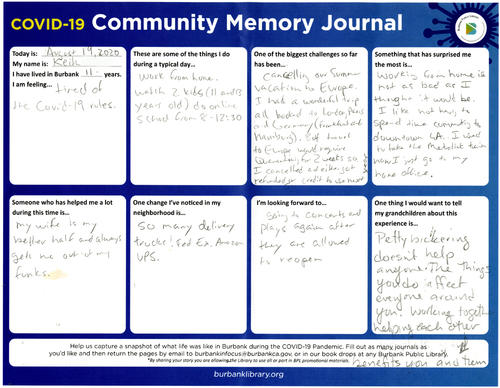 COVID-19 Community Memory Journal
Burbank Public Library
Today is: August 19, 2020
My name is: Keith
I have lived in Burbank 11 years.
I am feeling... tired of
the Covid-19 rules.
These are some of the things I do
during a typical day...
work from home.
watch 2 kids (11 and 13
years old) do online
school from 8-12:30
One of the biggest challenges so far
has been...
cancelling our summer
vacation to Europe.
I had a wonderful trip
all booked to London, Paris
and Germany (Frankfurt and
Hamburg). But travel
to Europe would require
Quarantine for 2 weeks so
I cancelled and either got
refunded or credit to use next
Something that has surprised me
the most is...
Working from home is
not as bad as I
thought it would be.
I like not having to
spend time commuting to
downtown LA. I used
to take the Metrolink train
now I just go to my
home office.
Someone who has helped me a lot
during this time is...
my wife is my
better half and always
gets me out of my
funks.
One change I've noticed in my
neighborhood is...
so many delivery
trucks! Fed Ex, Amazon
UPS.
I'm looking forward to...
going to concerts and
plays again after
they are allowed
to reopen
One thing I would want to tell
my grandchildren about this
experience is...
Petty bickering
doesn't help
anyone. The things
you do affect
everyone around
you. Working together
helping each other
benefits you and them
Help us capture a snapshot of what life was like in Burbank during the COVID-19 Pandemic. Fill out as many journals as
you'd like and then return the pages by email to burbankinfocus@burbankca.gov, or in our book drops at any Burbank Public Library.
*By sharing your story you are allowing the Library to use all or part in BPL promotional materials.
burbanklibrary.org